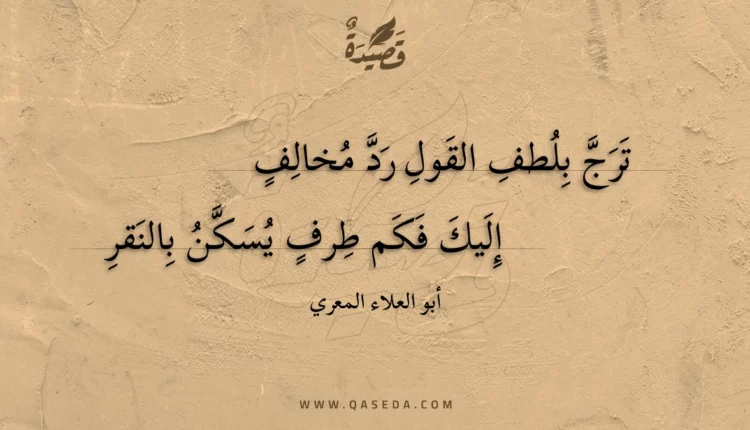 قَصِيدَةٌ
تَرَجَّ بِلُطفِ القَولِ رَدَّ مُخالِفٍ
إِلَيكَ فَكَم طِرفٍ يُسَكَّنُ بِالنَقرِ
أبو العلاء المعري
WWW.QASEDA.COM